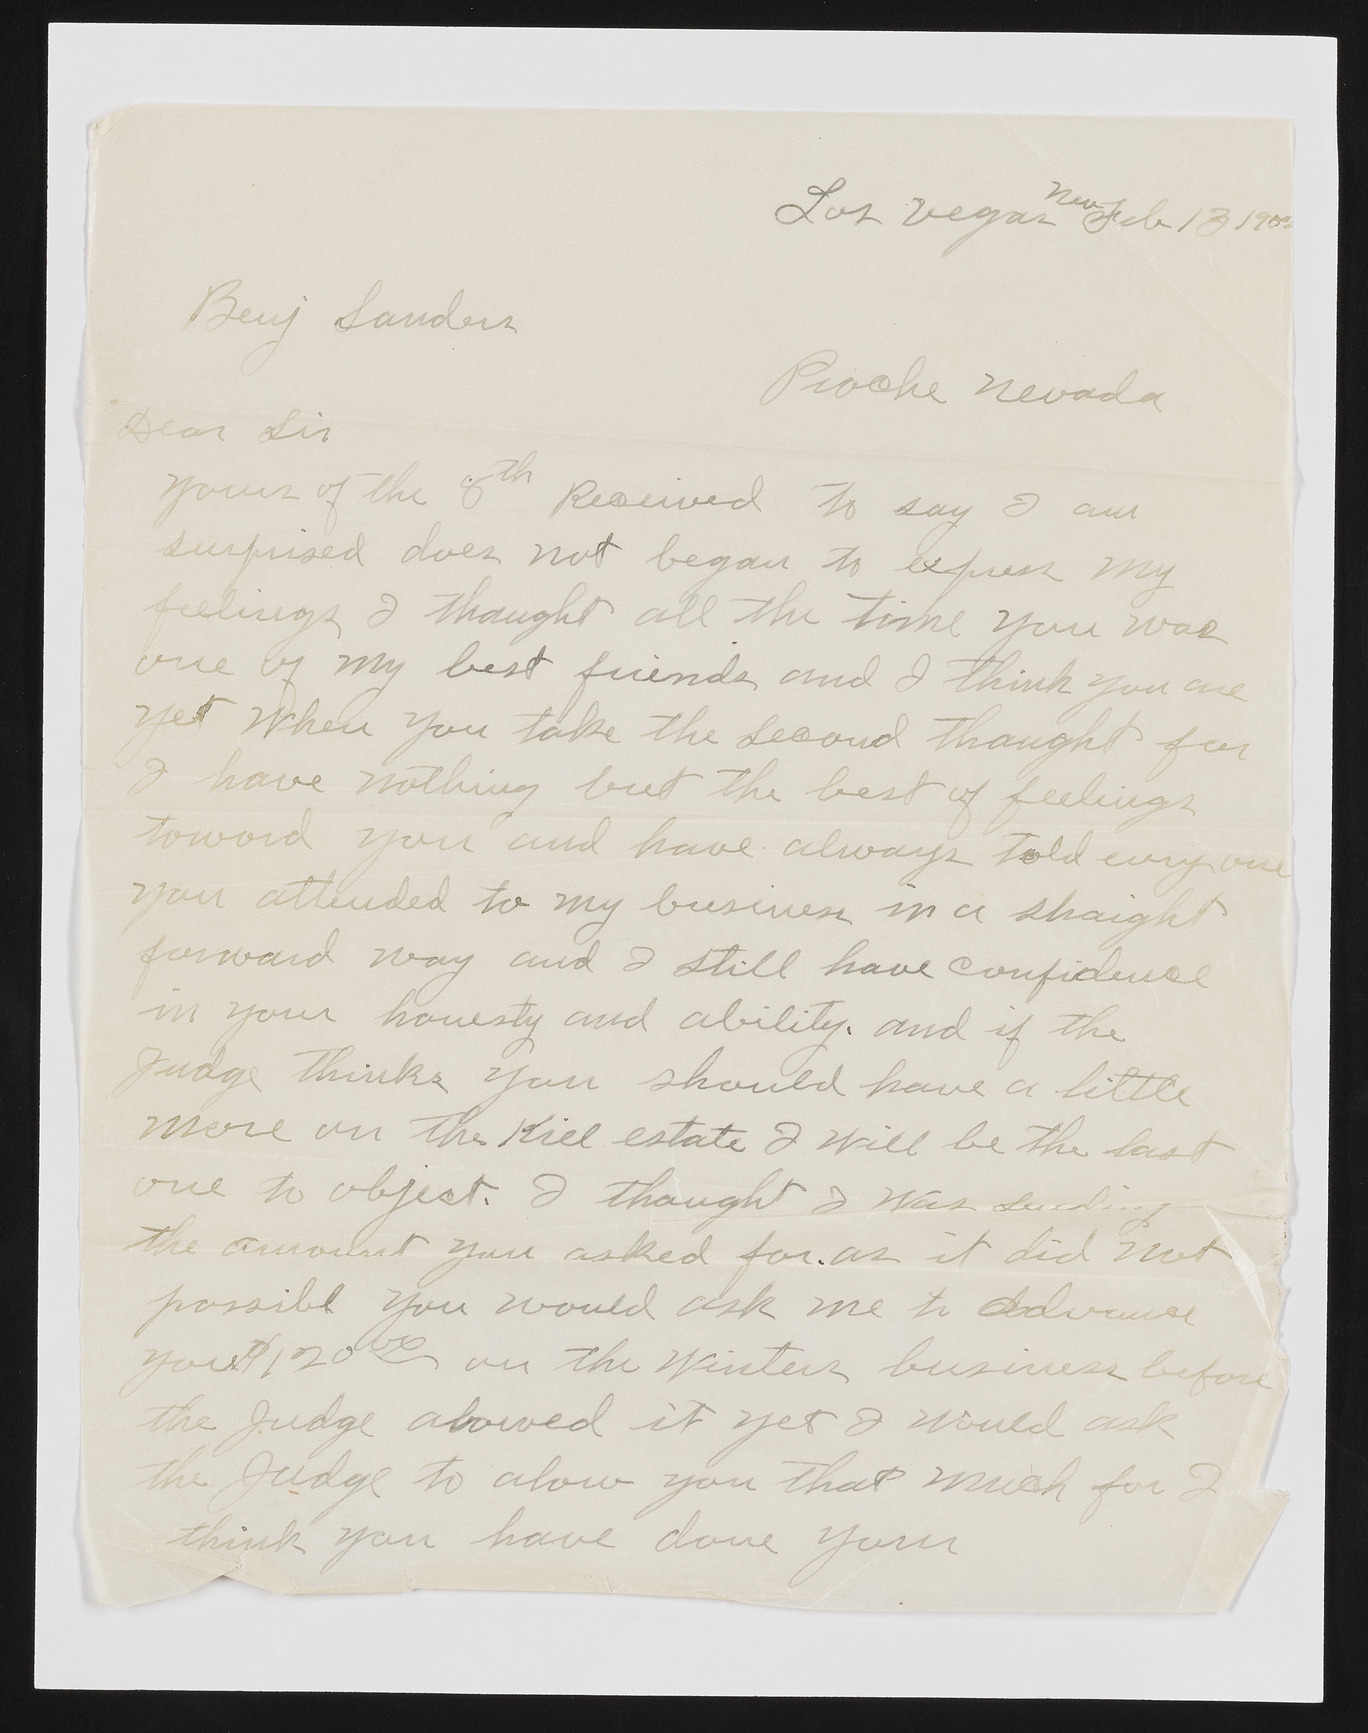 Los Vegas Nev Feb 13 190
Benj Sanders
Pioche Nevada
Dear Sir
yours of the 8th Received to say I am
surprised does not began to express my
feelings I thought all the time you was
one of my best friends and I think you are
yet when you take the second thought for
I have nothing but the best of feelings
toword you and have always told every one
you attended to my business in a straight
forward way and I still have confidence
in your honesty and ability. and if the
Judge thinks you should have a little
more on the Kiel estate I will be the last
one to object. I thought I was sending
the amount you asked for. as it did not
possible you would ask me to advance
you $120.00 on the Winters business before
the Judge alowed it yet I would ask
the Judge to alow you that much for I
think you have done your